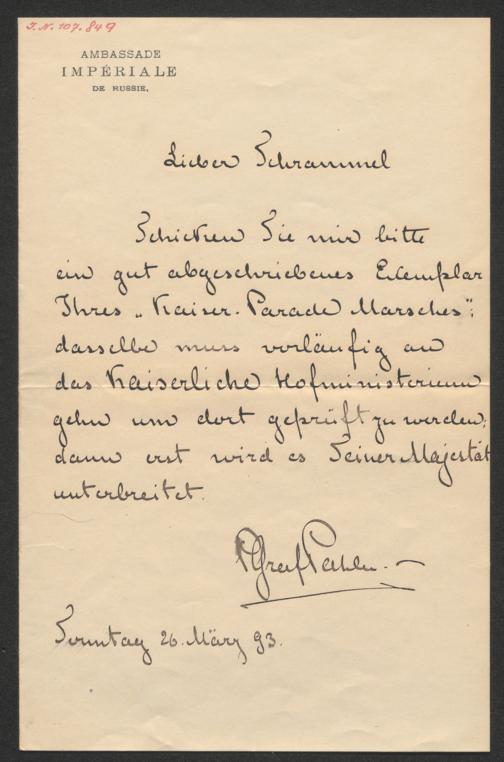 I.N. 107.849
AMBASSADE
IMPÉRIALE
DE RUSSIE.
Lieber Schrammel
Schicken Sie mir bitte
ein gut abgeschriebenes Exemplar
Ihres „Kaiser-Parade Marsches";
dasselbe muss vorläufig an
das Kaiserliche Hofministerium
gehn um dort geprüft zu werden;
dann erst wird es Seiner Majestät
unterbreitet.
Graf Pahlen
Sonntag 26. März 93.